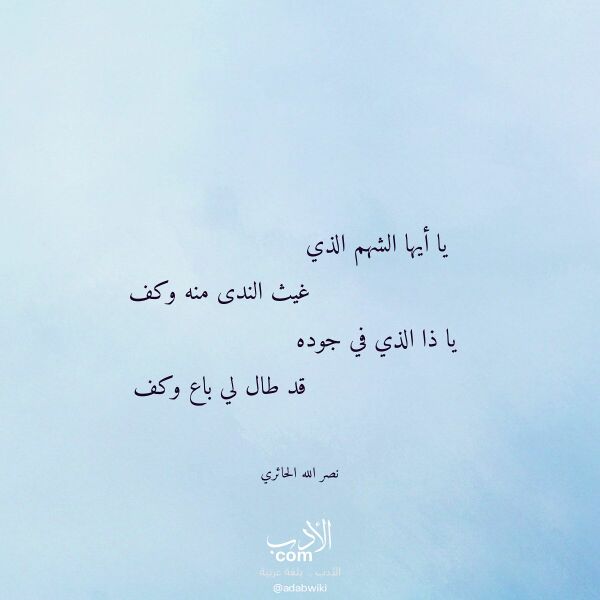 يا أيها الشهم الذي
غيث الندى منه وكف
يا ذا الذي في جوده
قد طال لي باع وكف
نصر الله الحائري
الأدب
com
الأدب .. بلغة عربية
@adabwiki